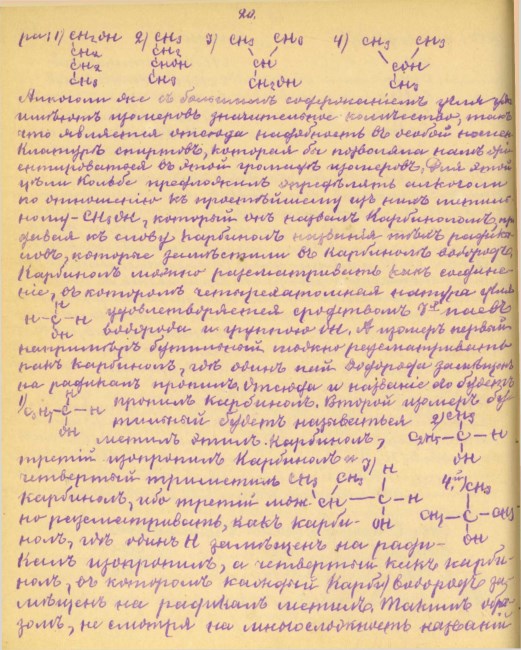 20.
ра: 1) CH₂OH 2) CH₃ 3) CH₃ CH₃ 4) CH₃ CH₃
CH₂ CH₂ CH COH
CH₂ CHOH CH₂OH CH₃
CH₃ CH₃
Алкоголи же съ большимъ содержаніемъ угля уже
имѣютъ изомеровъ значительное количество, такъ
что является отсюда надобность въ особой номен
клатурѣ спиртовъ, которая бы позволяла намъ орі
ентироваться въ этой громадѣ изомеровъ. Для этой
цѣли Кольбе предложилъ опредѣлять алкоголи
по отношенію къ простѣйшему изъ нихъ метиль
ному - CH₃OH, который онъ назвалъ Карбиноломъ, при
давая къ слову Карбинолъ названія тѣхъ радика
ловъ, которые замѣстили въ Карбинолѣ водородъ.
Карбинолъ можно разсматривать какъ соедине
ніе, въ которомъ четырехатомная натура угля
H
H - C - H удовлетворяется средствомъ 3хъ паевъ
OH водорода и группою OH. А изомеръ первый
напримѣръ бутильный можно разсматривать
какъ карбинолъ, гдѣ одинъ пай водорода замѣщенъ
на радикалъ пропилъ. Отсюда и названіе его будетъ
1) H
C₃H₇ - C - H пропилъ карбинолъ. Второй изомеръ бу
OH тильный будетъ называться 2) CH₃
метилъ этилъ. Карбинолъ, C₂H₅ - C - H
третій изопропилъ Карбинолъ и OH
четвертый триметилъ 3) CH₃ CH₃ H 4.й CH₃
Карбинолъ, ибо третій мож CH - C - H
но разсматривать, какъ карби- OH CH₃ - C - CH₃
нолъ, гдѣ одинъ H замѣщенъ на ради- OH
калъ изопропилъ, а четвертый какъ карби-
нолъ, въ которомъ каждый (Карби) водородъ за
мѣщенъ на радикалъ метилъ. Такимъ обра
зомъ, не смотря на многосложность названій